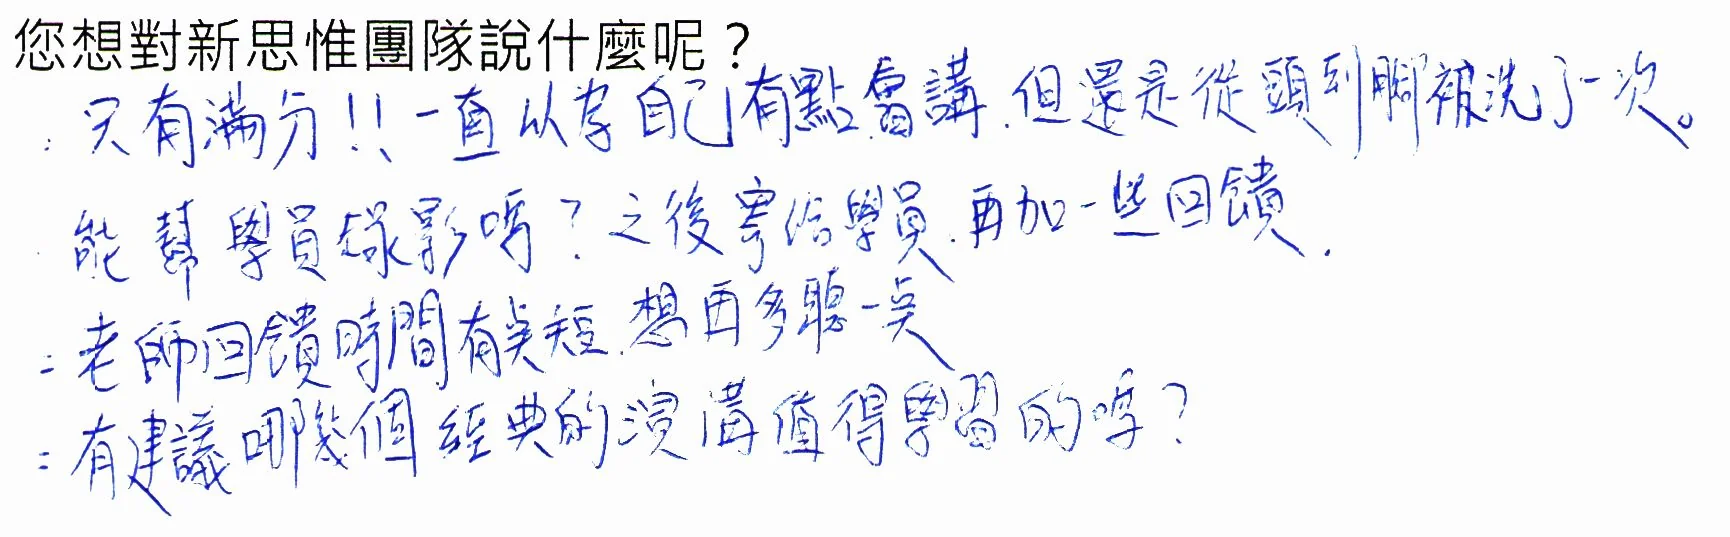 您想對新思惟團隊說什麼呢？
: 只有滿分!! 一直以為自己有點會講，但還是從頭到腳被洗了一次。
. 能幫學員錄影嗎？之後寄給學員，再加一些回饋.
: 老師回饋時間有点短，想再多聽一点
: 有建議哪幾個經典的演講值得學習的嗎？